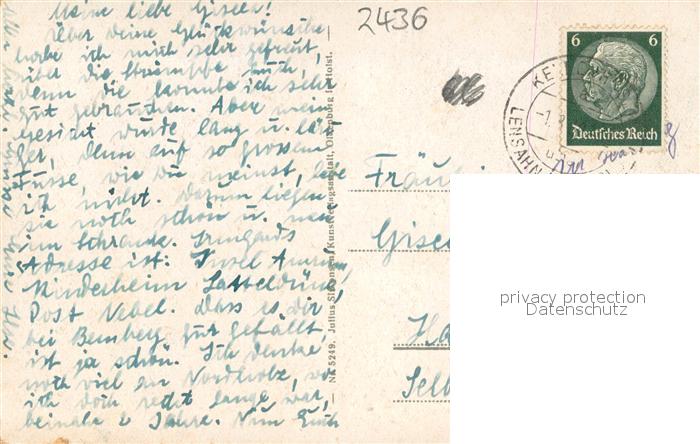 Meine liebe Gisela!
Über deine Glückwünsche
habe ich mich sehr gefreut,
über die Strümpfe auch,
denn die konnte ich sehr
gut gebrauchen. Aber mein
Gesicht wurde lang u. län-
ger, denn auf so grossem
Fusse, wie du meinst, lebe
ich nicht. Darum liegen
sie noch schön u. neu
im Schranke. Irmgards
Adresse ist: Insel Amrum,
Kinderheim Satteldüne,
Post Nebel. Dass es dir
bei Bemberg gut gefällt,
ist ja schön. Ich denke
noch viel an Nordholz, wo
ich doch recht lange war,
beinahe 2 Jahre. Nun Euch
2436
Nr. 5249. Julius Simonsen, Kunstverlagsanstalt, Oldenburg in Holst.
6 6
Deutsches Reich
LENSAHN
Fräulei
Gisel
Ha
Selb
privacy protection
Datenschutz